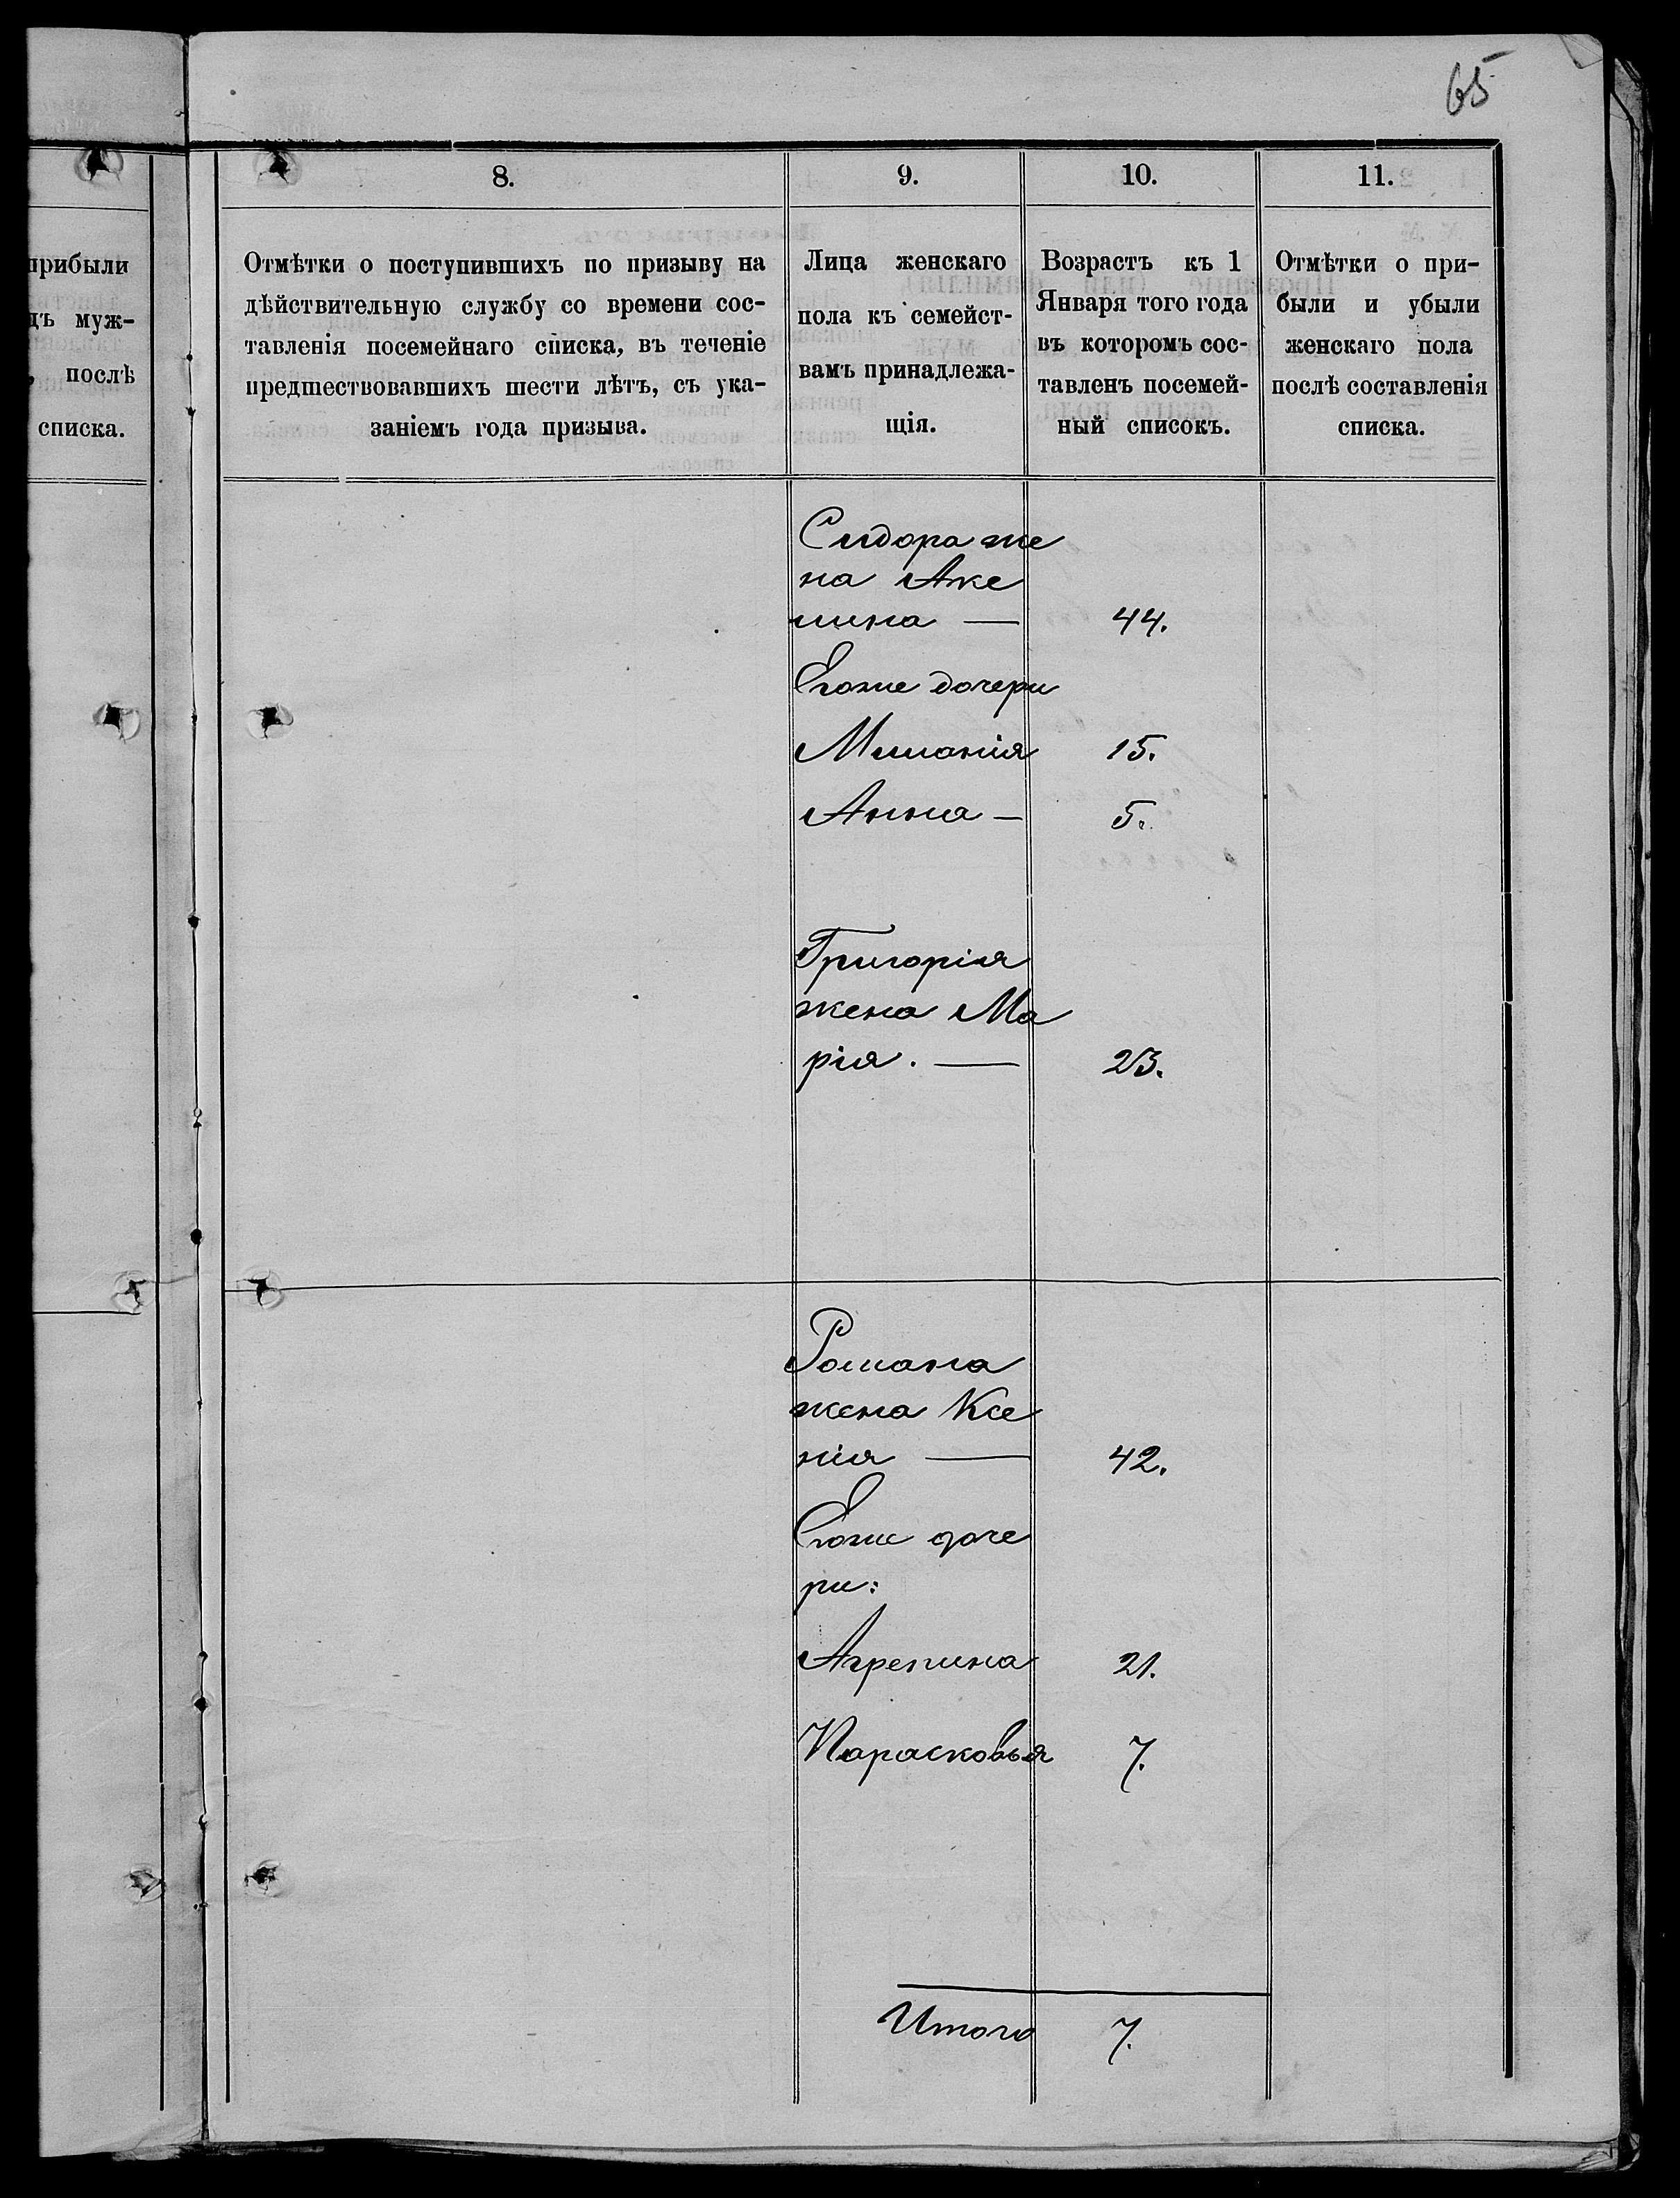 65
прибыли
дъ муж-
, послѣ
списка.
8.
Отмѣтки о поступившихъ по призыву на
дѣйствительную службу со времени сос-
тавленія посемейнаго списка, въ теченіе
предшествовавшихъ шести лѣтъ, съ ука-
заніемъ года призыва.
9.
Лица женскаго
пола къ семейст-
вамъ принадлежа-
щія.
10.
Возрастъ къ 1
Января того года
въ которомъ сос-
тавленъ посемей-
ный списокъ.
11.
Отмѣтки о при-
были и убыли
женскаго пола
послѣ составленія
списка.
Сидора же
на Аке
лина — 44.
Егоже дочери
Миланія 15.
Анна — 5.
Григорія
жена Ма
рія. — 23.
Романа
жена Ксе
нія — 42.
Егоже доче
ри:
Агрепина 21.
Парасковья 7.
Итого 7.